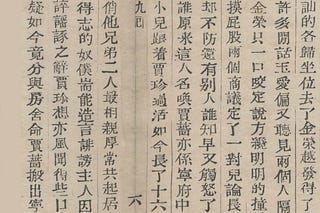 訕的歸坐位去了金榮越發得了
許多閒話玉愛偏又聽見兩個人隔
金榮只一口咬定說方纔明明的撞
摸屁股兩個商議定了一對兒論長
却不防還有别人誰知早又觸怒了
誰原來這人名喚賈薔亦係寧府中
小兒跟着賈珍過活如今長了十六
九囬
六
俏他兄弟二人最相親厚常共起居
得志的奴僕端能造言誹謗主人因
詬謡諑之辭賈珍想亦風聞得些口
疑如今竟分與房舍命賈薔搬出寧